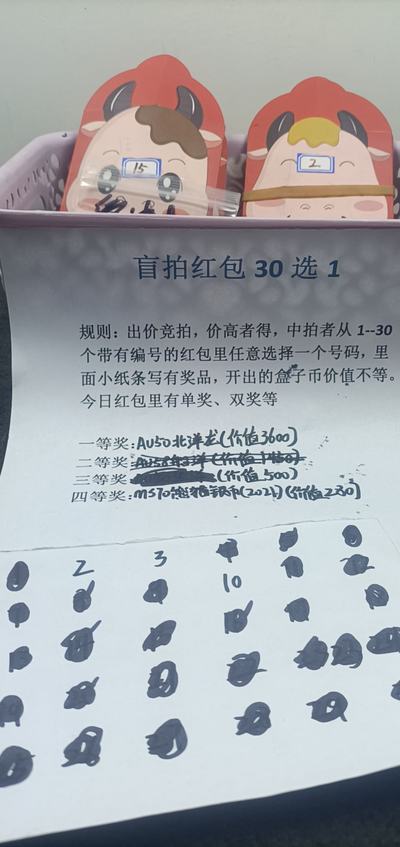 15
2
盲拍红包 30 选 1
规则：出价竞拍，价高者得，中拍者从 1--30
个带有编号的红包里任意选择一个号码，里
面小纸条写有奖品，开出的盒子币价值不等。
今日红包里有单奖、双奖等
一等奖：AU50北洋龙(价值3600)
二等奖：
三等奖：(价值500)
四等奖：MS70熊猫银币(2021)(价值230)
2 3
10